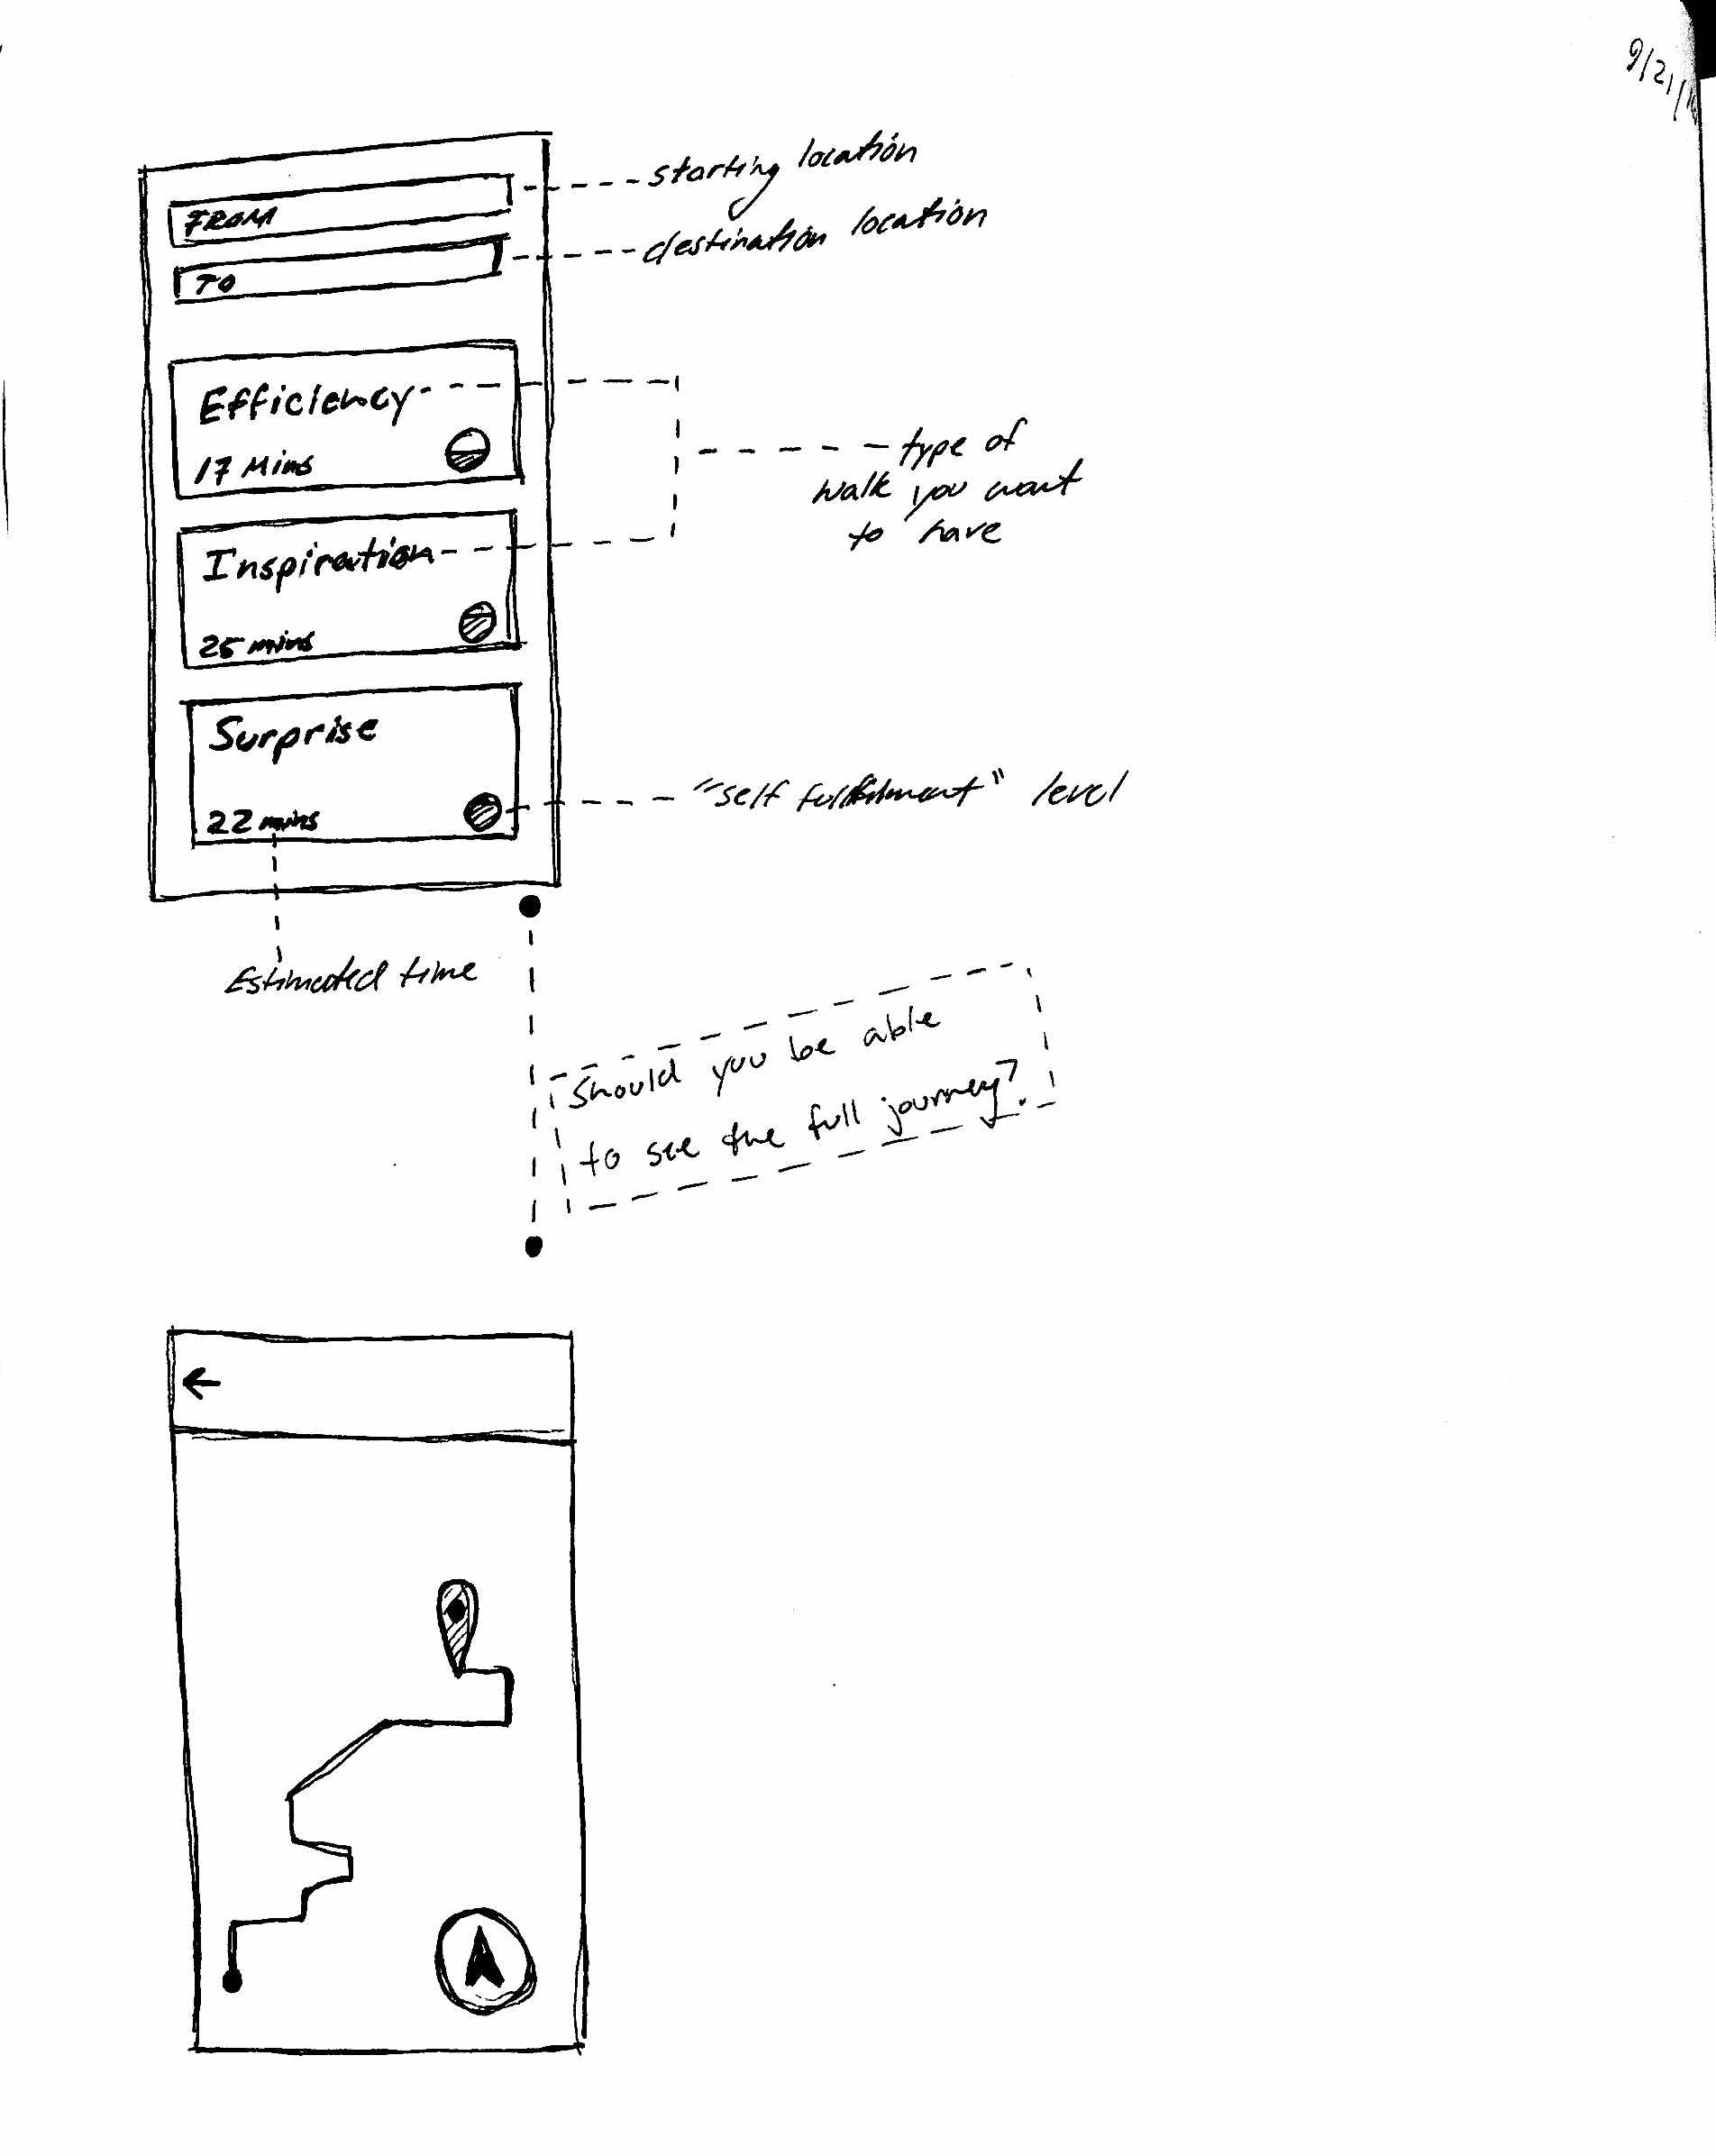 9/21/
FROM
starting location
TO
destination location
Efficiency
17 Mins
type of
walk you want
to have
Inspiration
25 mins
Surprise
22 mins
"self fulfillment" level
Estimated time
Should you be able
to see the full journey?